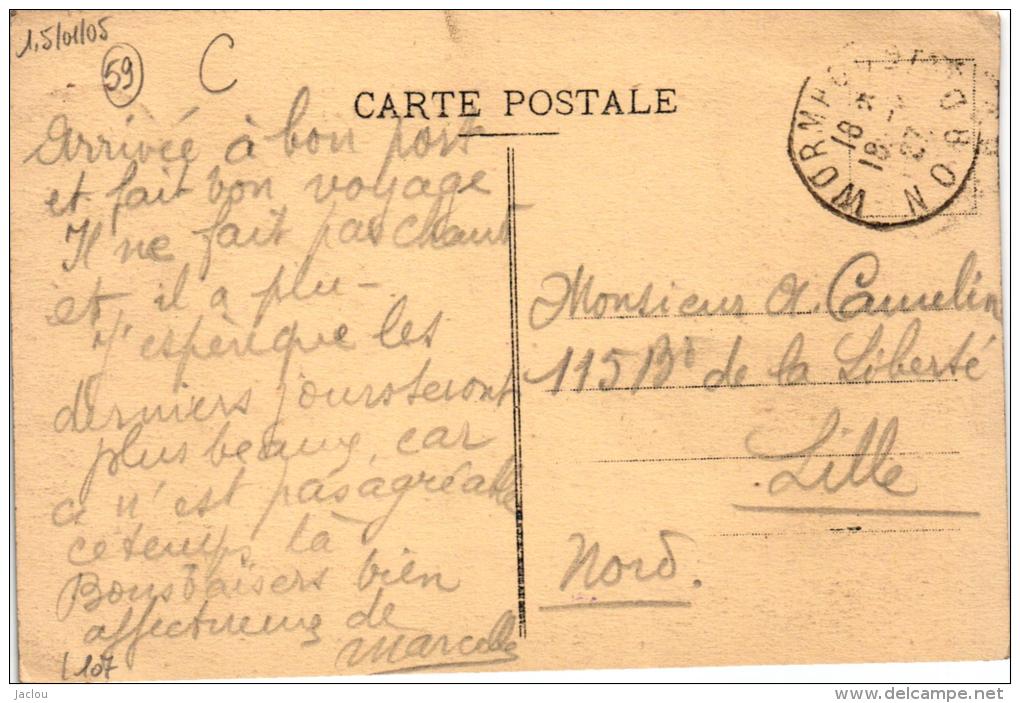 1,5/01/05
59
C
CARTE POSTALE
WORMHOUDT NORD
18
18
27
Arrivée à bon port
et fait bon voyage
Il ne fait pas chaud
et il a plu -
J'espère que les
derniers jours seront
plus beaux, car
c n'est pas agréable
ce temps là
Bons baisers bien
affectueux de
Marcelle
Monsieur A. Camelin
115 Bd de la Liberté
Lille
Nord.
107
Jaclou
www.delcampe.net